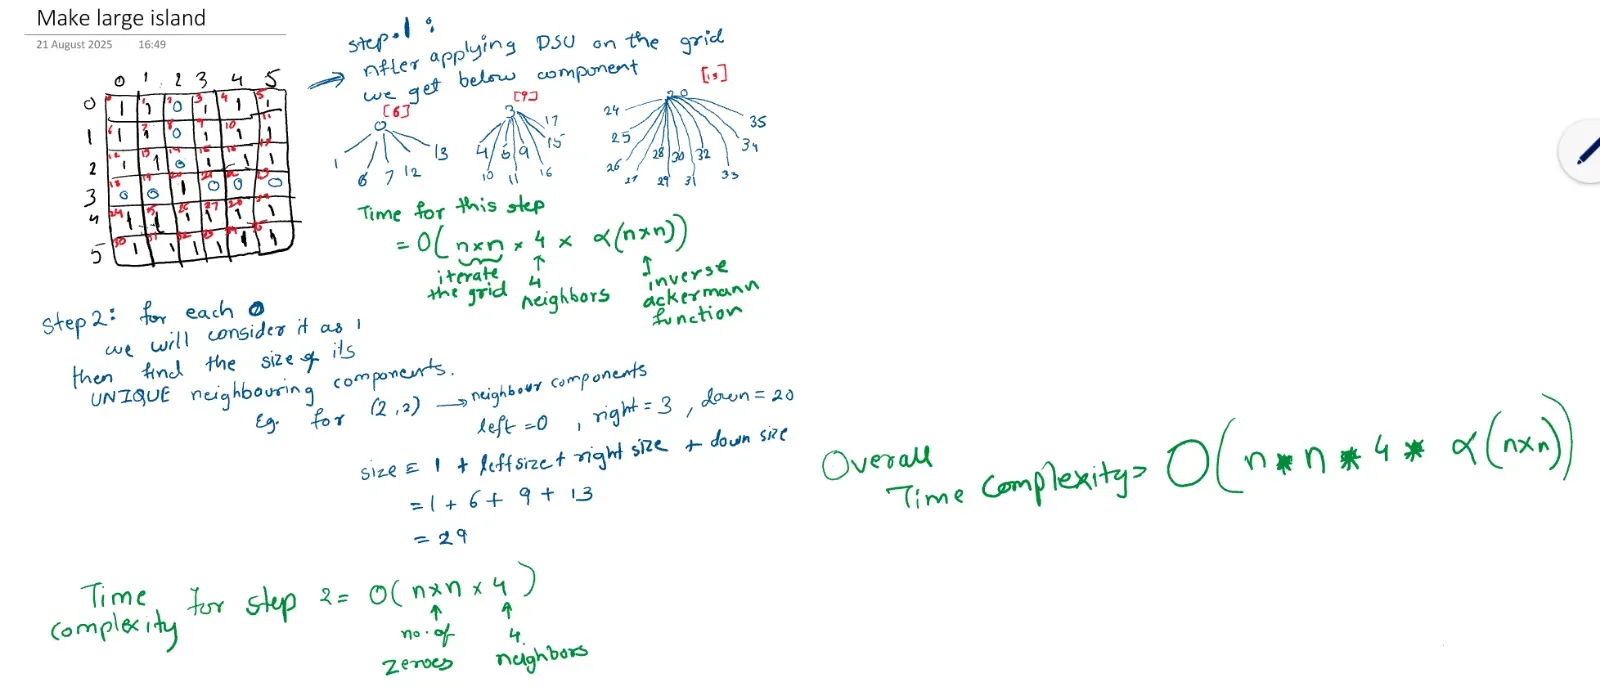 Make large island
21 August 2025 16:49
0 1 2 3 4 5
0 0 1 1 0 3 1 4 1 5 1
1 6 1 7 1 8 0 9 1 10 1 11 1
2 12 1 13 1 14 0 15 1 16 1 17 1
3 18 0 19 0 20 1 21 0 22 0 23 0
4 24 1 25 1 26 1 27 1 28 1 29 1
5 30 1 31 1 32 1 33 1 34 1 1
Step-1:
After applying DSU on the grid
we get below component
[6] [9] [13]
0 3 20
1 6 7 12 13
4 5 9 10 11 15 16 17
24 25 26 27 28 29 30 31 32 33 34 35
Time for this step
= O( n×n × 4 × α(n×n))
iterate
the grid
4
neighbors
inverse
ackermann
function
Step 2: for each 0
we will consider it as 1
then find the size of its
UNIQUE neighbouring components.
Eg. for (2,2) → neighbour components
left =0 , right = 3 , down = 20
size = 1 + left size + right size + down size
= 1 + 6 + 9 + 13
= 29
Time
complexity for step 2 = O( n×n × 4 )
no. of
zeroes
4
neighbors
Overall
Time Complexity = O( n * n * 4 * α(n×n))